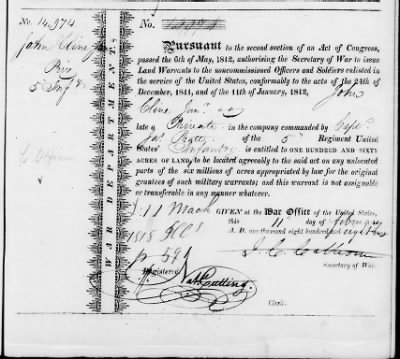 No. 14,974
John Cline Jun
Priv
5 Inf
No. 14974
WAR DEPARTMENT.
Pursuant to the second section of an Act of Congress,
passed the 6th of May, 1812, authorising the Secretary of War to issue
Land Warrants to the noncommissioned Officers and Soldiers enlisted in
the service of the United States, conformably to the acts of the 24th of
December, 1811, and of the 11th of January, 1812, John
Cline Junr
late a Private in the company commanded by Capt.
of the 5th Regiment United
States' Infantry is entitled to ONE HUNDRED AND SIXTY
ACRES OF LAND, to be located agreeably to the said act on any unlocated
parts of the six millions of acres appropriated by law for the original
grantees of such military warrants; and this warrant is not assignable
or transferable in any manner whatever.
GIVEN at the War Office of the United States,
this 11th day of February
A. D. one thousand eight hundred and eighteen
J. C. Calhoun
Secretary of War.
Registered
Nat Cutting.
Clerk.